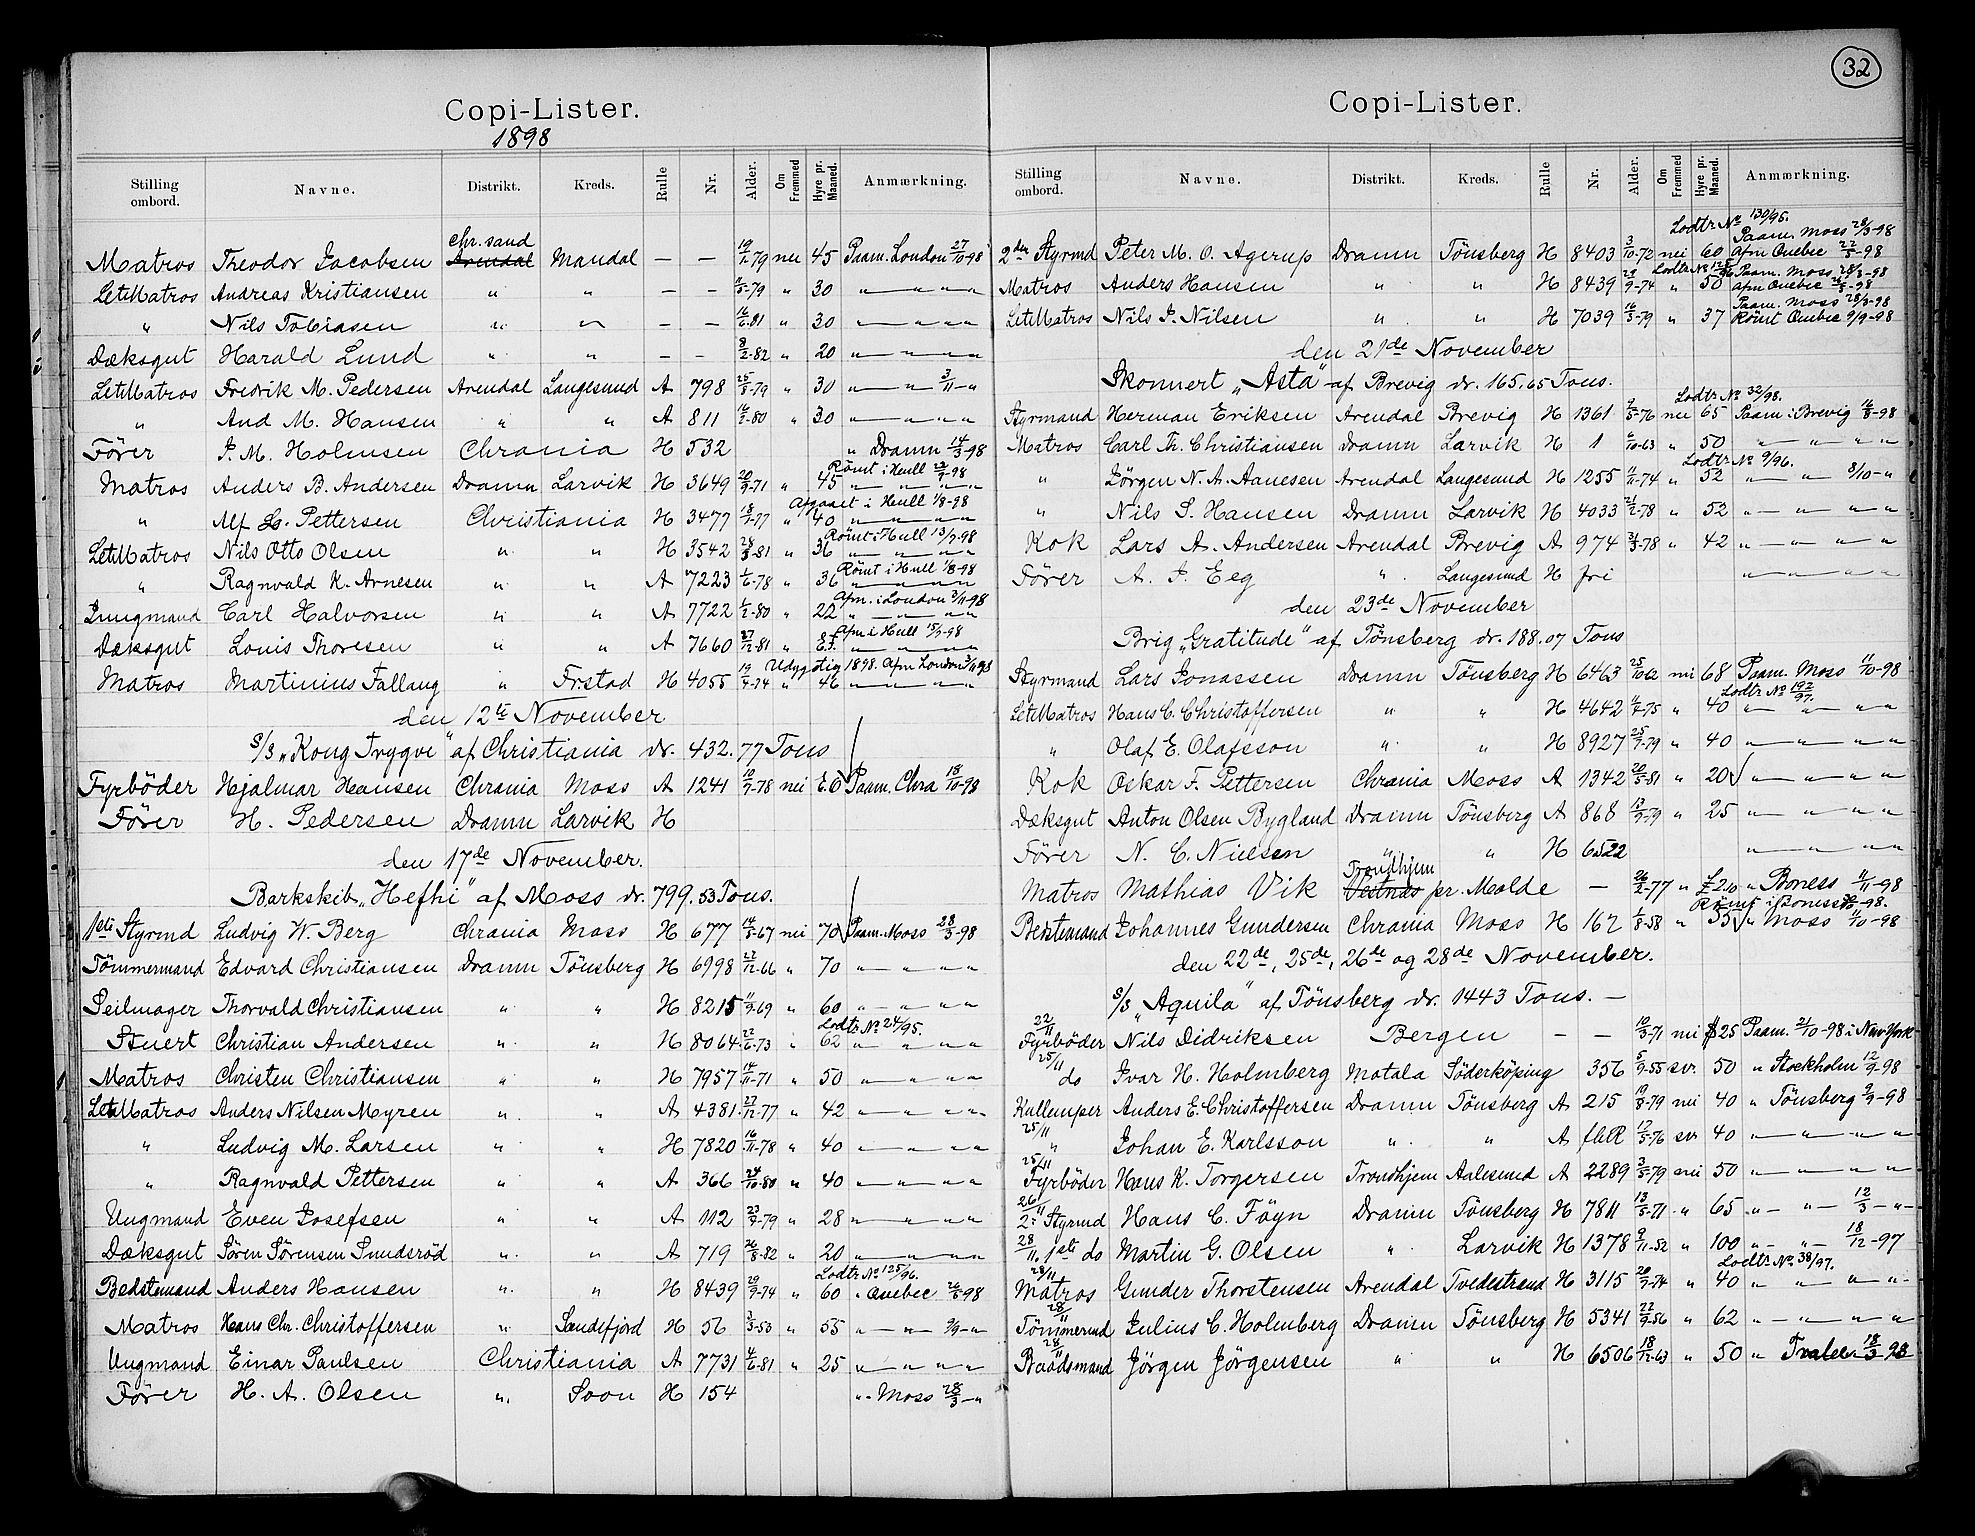 32
Copi-Lister.
1898
Stilling ombord. Navne. Distrikt. Kreds. Rulle Nr. Alder. Om Fremmed Hyre pr. Maaned. Anmærkning.
Chr.sand
Matros Theodor Jacobsen Arendal Mandal — — 19/1-79 nei 45 Paam. London 27/10-98
LetMatros Andreas Kristiansen " " — — -79 " 30 " " " "
" Nils Tobiasen " " — — 16/6-81 " 30 " " "
Dæksgut Harald Lund " " — — 8/2-82 " 20 " " "
LetMatros Fredrik M. Pedersen Arendal Langesund A 798 25/8-79 " 30 " " 3/11 - "
" And M. Hansen " " A 811 16/2-80 " 30 " " "
Förer J. M. Holmsen Chrania H 532 " Dramn 14/3-98
Römt i Hull 23/9-98
Matros Anders B. Andersen Dramn Larvik H 3649 20/9-71 " 45 " " " "
Afgaaet i Hull 1/8-98
" Alf Lo. Pettersen Christiania H 3477 18/7-77 " 40 " " " "
Römt i Hull 13/7-98
LetMatros Nils Otto Olsen " " H 3542 28/3-81 " 36 " " " "
Römt i Hull 1/8-98
" Ragnvald K. Arnesen " " A 7223 1/6-78 " 36 " " " "
Afm. i London 3/11-98
Jungmand Carl Halvorsen " " A 7722 1/2-80 " 22 " " " "
Afm i Hull 15/7-98
Dæksgut Louis Thoresen " " A 7660 27/12-81 " " " " "
Udyg tig 1898. Afm London 3/11 98
Matros Martinius Fallang " Frstad H 4055 19/9-74 " 46 " " " "
den 12te November
S/S „Kong Trygve" af Christiania dr. 432.77 Tons
Fyrböder Hjalmar Hansen Chrania Moss A 1241 10/9-78 nei E.O Paam. Chra 18/10-98
Förer H. Pedersen Dramn Larvik H
den 17de November.
Barkskib „Hefhi" af Moss dr. 799.53 Tons.
1ste Styrmd Ludvig W. Berg Chrania Moss H 677 14/5-67 nei 70 Paam. Moss 28/3-98
Tömmermand Edvard Christiansen Dramn Tönsberg H 6998 27/12-66 " 70 " " " "
Seilmager Thorvald Christiansen " " H 8215 11/9-69 " 60 " " " "
Lodtr. No 24/95.
Stuert Christian Andersen " " H 8064 22/6-73 " 62 " " " "
Matros Christen Christiansen " " H 7957 14/11-71 " 50 " " " "
LetMatros Anders Nilsen Myren " " A 4381 27/12-77 " 42 " " " "
" Ludvig M. Larsen " " H 7820 16/11-78 " 40 " " " "
" Ragnvald Pettersen " " A 366 24/10-80 " 40 " " " "
Ungmand Even Josefsen " " A 112 23/9-79 " 28 " " " "
Dæksgut Sören Sörensen Sundsröd " " A 719 26/8-82 " 20 " " " "
Lodtr. No 125/96.
Bedstemand Anders Hansen " " H 8439 29/9-74 " 60 " Quebec 26/5-98
Matros Hans Chr. Christoffersen " Sandefjord H 56 3/3-53 " 55 " " 9/9 - "
Ungmand Einar Paulsen Christiania A 7731 4/6-81 " 25 " " " "
Förer H. A. Olsen " Soon H 154 " Moss 28/3 - "
Copi-Lister.
Stilling ombord. Navne. Distrikt. Kreds. Rulle Nr. Alder. Om Fremmed Hyre pr. Maaned. Anmærkning.
Lodtr No 130/95.
Paam. Moss 28/3-98
2den Styrmd Peter M. O. Agerup Dramn Tönsberg H 8403 3/10-72 nei 60 Afm Quebec 22/5-98
Lodtr. No 125/96 Paam. Moss 28/3-98
Matros Anders Hansen " " H 8439 29/9-74 " 50 Afm Quebec 26/5-98
Paam. Moss 28/3-98
LetMatros Nils J. Nilsen " " H 7039 16/3-79 " 37 Römt Quebec 9/9-98
den 21de November
Skonnert „Asta" af Brevig dr. 165.65 Tons.
Lodtr No 32/98.
Styrmand Herman Eriksen Arendal Brevig H 1361 7/5-76 nei 65 Paam i Brevig 16/8-98
Matros Carl Th. Christiansen Dramn Larvik H 1 6/10-63 " 50 " " " "
Lodtr No 9/96.
" Jörgen N. A. Aanesen Arendal Langesund H 1255 1/11-74 " 52 " " 8/10 - "
" Nils S. Hansen Dramn Larvik H 4033 21/2-78 " 52 " " " "
Kok Lars A. Andersen Arendal Brevig A 974 21/3-78 " 42 " " " "
Förer A. J. Eeg " Langesund H fri " " " "
den 23de November
Brig „Gratitude" af Tönsberg dr. 188.07 Tons
Styrmand Lars Jonassen Dramn Tönsberg H 6463 25/10-62 nei 68 Paam. Moss 11/10-98
Lodtr No 192/97.
LetMatros Hans C. Christoffersen " " H 4642 11/7-75 " 40 " " " "
" Olaf E. Olafsson " " H 8927 25/7-79 " 40 " " " "
Kok Oskar F. Pettersen Chrania Moss A 1342 20/5-81 " 20 " " " "
Dæksgut Anton Olsen Bygland Dramn Tönsberg A 868 13/9-79 " 25 " " " "
Förer N. C. Nielsen " " H 6522 " " " "
Trondhjem
Matros Mathias Vik Vestnæs pr. Molde — 26/2-77 " £2.10 " Boness 11/11-98
Römt i Boness -98.
Bedstemand Johannes Gundersen Chrania Moss H 162 1/8-58 " 55 " Moss 11/10-98
den 22de, 25de, 26de og 28de November.
S/S „Aquila" af Tönsberg dr. 1443 Tons. —
22/11
Fyrböder Nils Didriksen Bergen — — 10/3-71 nei $25 Paam. 21/10-98 i New York
25/11
do Ivar H. Holmberg Motala Söderköping 356 5/9-55 sv. 50 " Stockholm 12/9-98
Kullemper Anders E. Christoffersen Dramn Tönsberg A 215 19/8-79 nei 40 " Tönsberg 2/9-98
25/11
" Johan E. Karlsson " " A fbR 17/5-76 sv 40 " " " "
25/11
Fyrböder Hans K. Torgersen Trondhjem Aalesund A 2289 3/5-79 nei 50 " " " "
26/11
2' Styrmd Hans C. Föyn Dramn Tönsberg H 7811 13/5-71 " 65 " " 12/3 - "
28/11 1ste do Martin G. Olsen " Larvik H 1378 9/11-52 " 100 " " 18/12-97
Lodtr. No. 38/97.
28/11
Matros Gunder Thorstensen Arendal Tvedestrand H 3115 20/9-74 " 40 " " " "
28/11
Tömmermd Julius C. Holmberg Dramn Tönsberg H 5341 22/9-56 " 62 " " " "
28/11
Baadsmand Jörgen Jörgensen " " H 6506 18/12-63 " 50 " 18/3 98